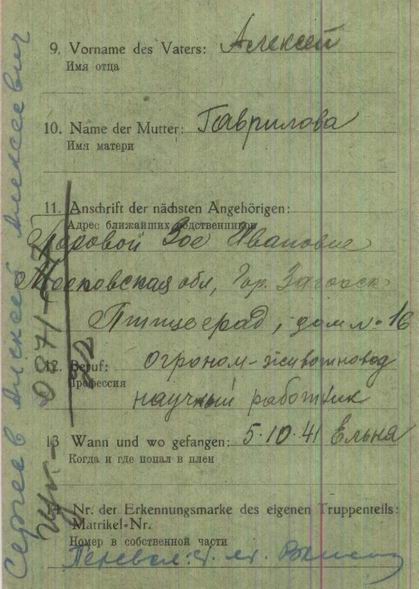 9. Vorname des Vaters: Алексей
Имя отца
10. Name der Mutter: Гаврилова
Имя матери
11. Anschrift der nächsten Angehörigen:
Адрес ближайших родственников
Зое Ивановне
Московская обл, Гор. Загорск
Птицеград, дом № 16
12. Beruf: огроном-животновод
Профессия
научный работник
13 Wann und wo gefangen: 5.10.41 Ельня
Когда и где попал в плен
14. Nr. der Erkennungsmarke des eigenen Truppenteils:
Matrikel-Nr.
Номер в собственной части
Сергеев Алексей Алексеевич